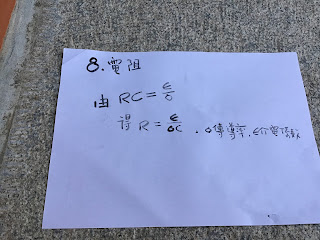 8.電阻
由 RC = ε/σ
得 R = ε/σC . σ傳導率. ε介電係數